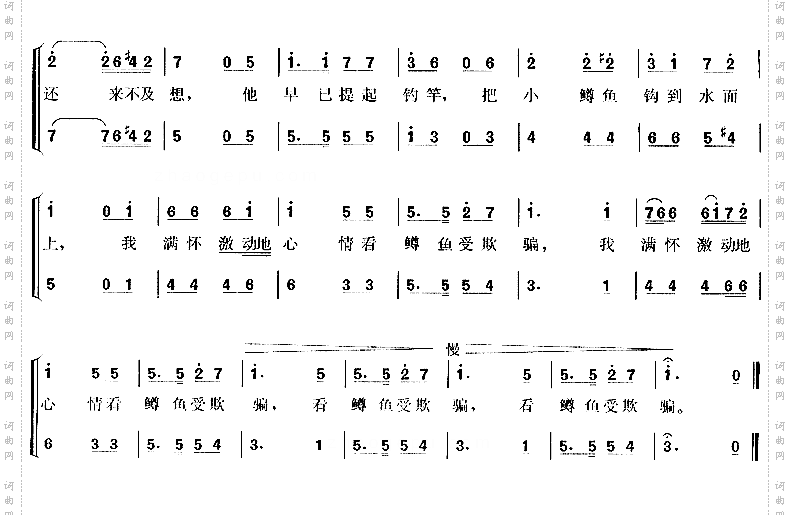 2̇ 2̇6♯4̇2 7 05 1̇·1̇77 3̇6 06 2̇ 2̇♯2̇ 3̇1̇ 72̇
还 来不及 想, 他 早已提起 钓竿, 把 小 鳟鱼 钩到 水面
7 76♯42 5 05 5·555 1̇3 03 4 44 66 5♯4
1̇ 01̇ 66 61̇ 1̇ 55 5·52̇7 1̇· 1̇ 766 61̇72̇
上, 我 满怀 激动地 心 情看 鳟鱼受欺 骗, 我 满怀 激动地
5 01 44 46 6 33 5·554 3· 1 44 466
慢
1̇ 55 5·52̇7 1̇· 5 5·52̇7 1̇· 5 5·52̇7 1̇· 0
心 情看 鳟鱼受欺 骗, 看 鳟鱼受欺 骗, 看 鳟鱼受欺 骗。
6 33 5·554 3· 1 5·554 3· 1 5·554 3· 0
词曲网